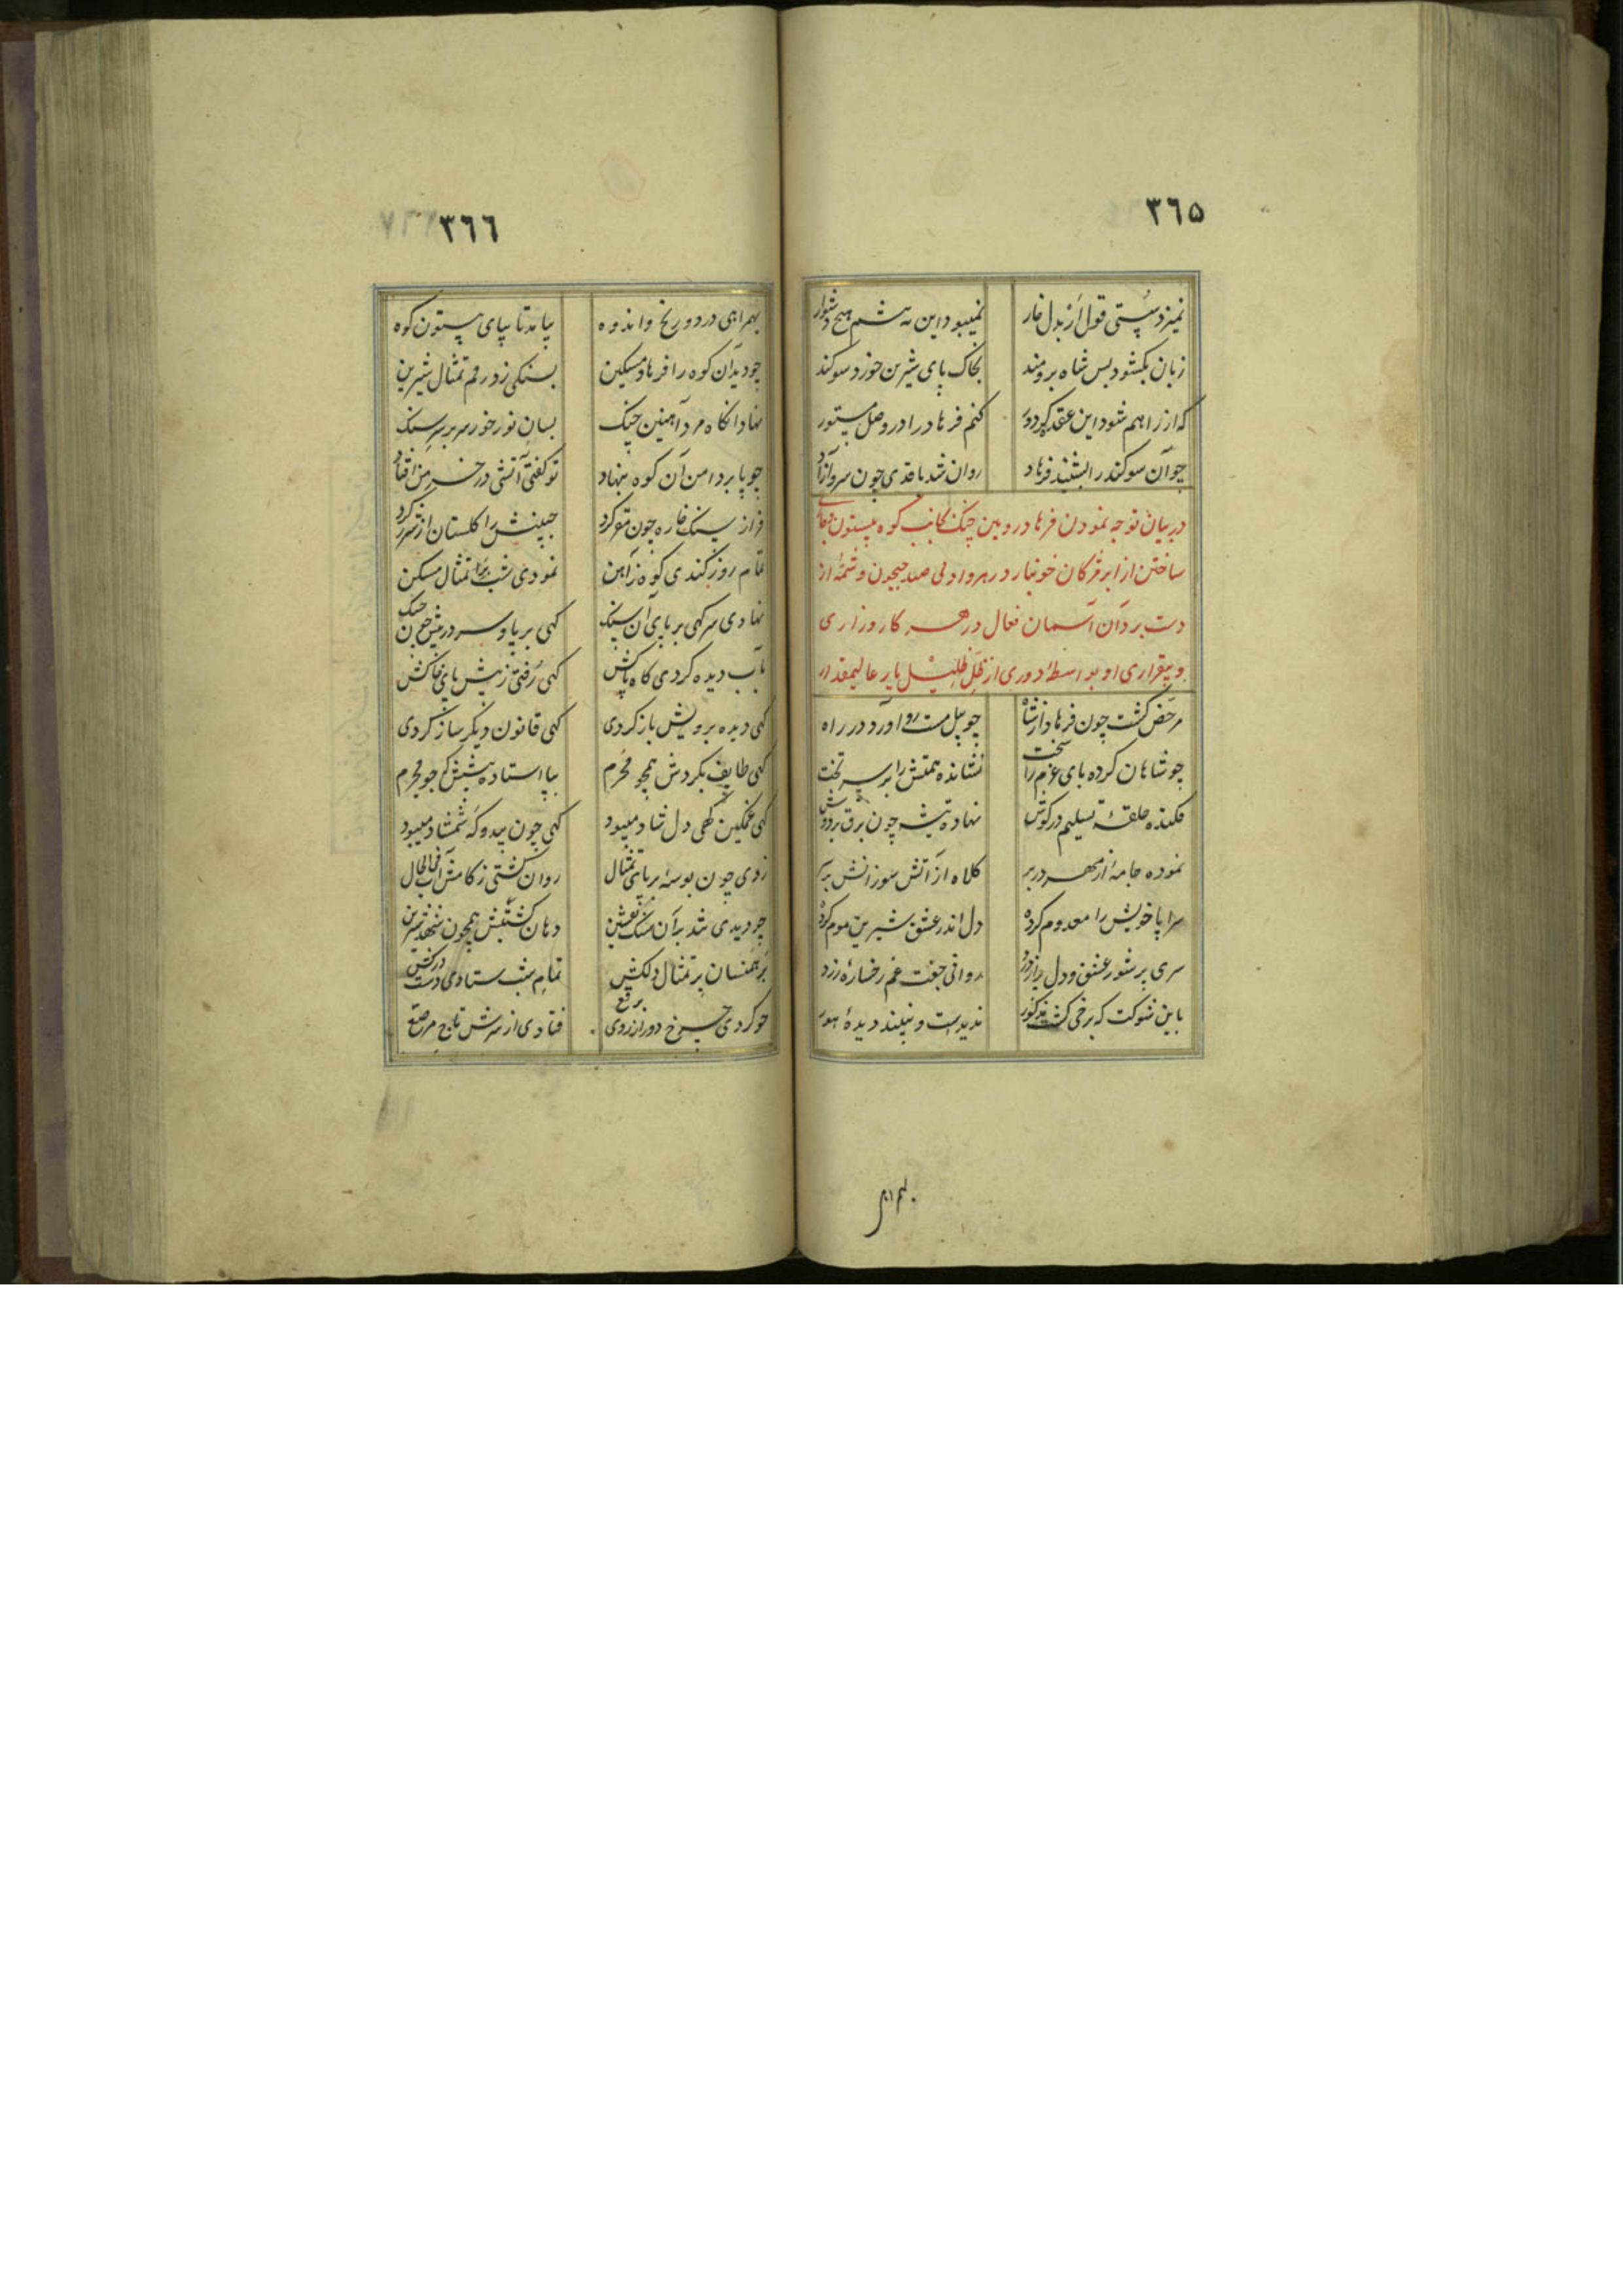 ٣٦٥
نمیزد سستی قول از بدل خار نمیبود این هم هیچ دشوار
زبان بکشود بس شاه برومند بخاک پای شیرین خورد سوکند
که از راهم شود این عقده کر دور کنم فرهاد را در وصل مستور
چو آن سوکند را بشنید فرهاد روان شد با قدی چون سرو آزاد
در بیان توجه نمودن فرهاد رویین چنک بجانب کوه بیستون و جاری
ساختن از ابر مژکان خونبار در هر وادی صد جیحون و شمهٔ از
دست برد آن آسمان فعال در هر کار و زاری
و بیقراری او بواسطهٔ دوری از ظل ظلیل یار عالیمقدار
مرخص کشت چون فرهاد از شاه چو پیل مست رو آورد در راه
چو شاهان کرده پای عزم را سخت نشانده همتش را بر سر تخت
فکنده حلقهٔ تسلیم در کوش نهاده تیشه چون برق بر دوش
نموده جامهٔ از مهر در بر کلاه از آتش سوزانش بر سر
سراپا خویش را معدوم کرده دل اندر عشق شیرین موم کرده
سری پر شور عشق و دل پر از درد روانی جفت غم رخسارهٔ زرد
باین شوکت که برخی کشت مذکور ندیدست و نبیند دیدهٔ هور
٣٦٦
بهمراهی درد و رنج و اندوه بیامد تا بپای بیستون کوه
چو دید آن کوه را فرهاد مسکین بسنکی زد رقم تمثال شیرین
نهاد انکاه مرد آهنین چنک بسان نور خور سر بر سر سنک
چو پا بر دامن آن کوه بنهاد تو کفتی آتشی در خرمن افتاد
فراز سنک خاره چون مقر کرد جبینش را کلستان از شرر کرد
تمام روز کندی کوه ز آهن نمودی شب بر تمثال مسکن
نهادی سر کهی بر پای آن سنک کهی بر پا و سر در پیش چون چنک
بآب دیده کردی کاه پاکش کهی رفتی ز پیش پای خاکش
کهی دیده برویش باز کردی کهی قانون دیکر ساز کردی
کهی طایف بکردش همچو محرم بپا استاده پیشش که چو مجرم
کهی غمکین کهی دل شاد میبود کهی چون بید و که شمشاد میبود
زدی چون بوسهٔ بر پای تمثال روان کشتی ز کامش آب فی الحال
چو دیدی شد بر آن سنک نقشین دهان کشتیش همچون شهد شیرین
برهمنسان بر تمثال دلکش تمام شب ستادی دست در کش
چو کردی چرخ دور از روی برقع فتادی از سرش تاج مرصع